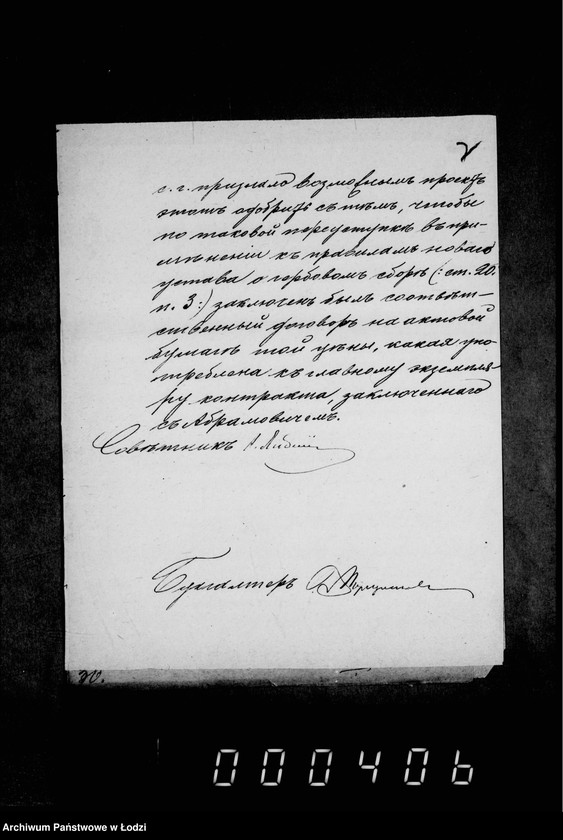 с. г. признало возможнымъ проектъ
этотъ одобрить съ тѣмъ, чтобы
по таковой переуступкѣ въ при-
мѣненіи къ правиламъ новаго
устава о гербовомъ сборѣ (: ст. 20.
п. 3 :) заключенъ былъ соотвѣт-
ственный договоръ на актовой
бумагѣ той цѣны, какая упо
треблена къ главному экземпля-
ру контракта, заключеннаго
съ Абрамовичемъ.
Совѣтникъ
Бухгалтеръ
000406
Archiwum Państwowe w Łodzi